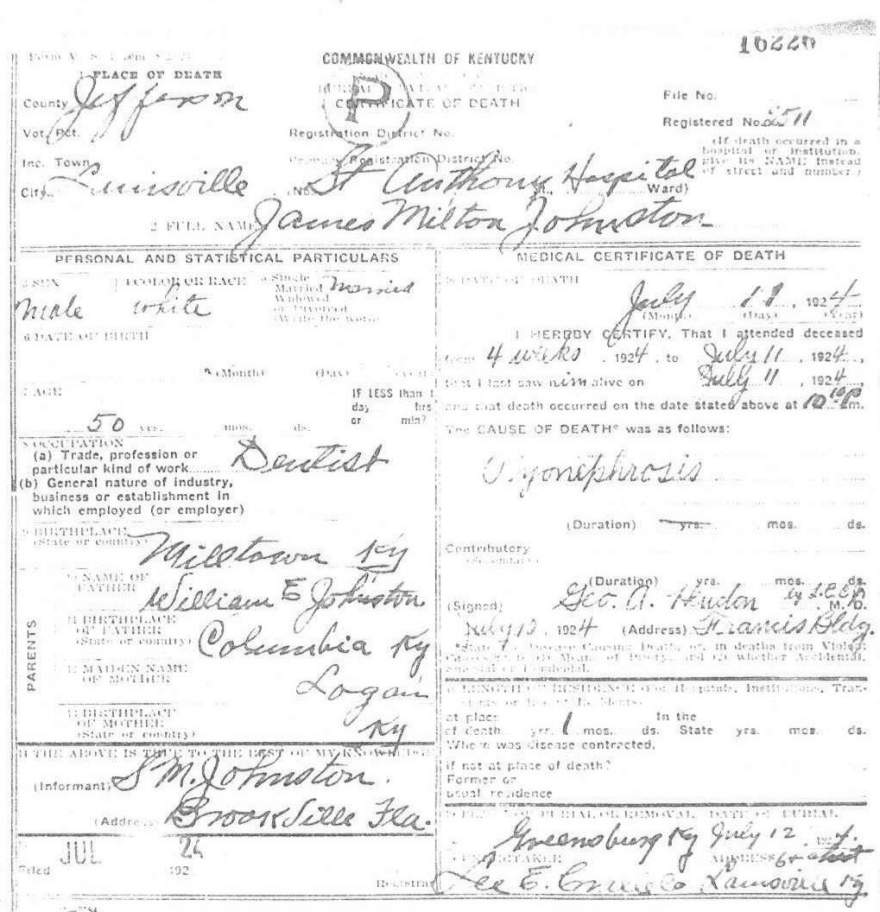 16226
COMMONWEALTH OF KENTUCKY
1 PLACE OF DEATH
County Jefferson
CERTIFICATE OF DEATH
P
File No.
Vot. Pct.
Registration District No.
Registered No. 2511
(If death occurred in a
hospital or institution,
give its NAME instead
of street and number.)
Inc. Town
Primary Registration District No.
City Louisville No. St Anthony Hospital Ward)
2 FULL NAME James Milton Johnston
PERSONAL AND STATISTICAL PARTICULARS
3 SEX
male
4 COLOR OR RACE
white
5 Single
Married
Widowed
or Divorced
(Write the word)
Married
6 DATE OF BIRTH
(Month) (Day) (Year)
7 AGE
50 yrs. mos. ds.
IF LESS than 1
day hrs
or min?
8 OCCUPATION
(a) Trade, profession or
particular kind of work Dentist
(b) General nature of industry,
business or establishment in
which employed (or employer)
9 BIRTHPLACE
(State or country) Milltown Ky
PARENTS
10 NAME OF
FATHER William E Johnston
11 BIRTHPLACE
OF FATHER
(State or country) Columbia Ky
12 MAIDEN NAME
OF MOTHER Logan
13 BIRTHPLACE
OF MOTHER
(State or country) Ky
THE ABOVE IS TRUE TO THE BEST OF MY KNOWLEDGE
(Informant) S M. Johnston.
(Address) Brooksville Fla.
Filed JUL 24 192 Registrar
MEDICAL CERTIFICATE OF DEATH
DATE OF DEATH
July 11, 1924
(Month) (Day) (Year)
I HEREBY CERTIFY, That I attended deceased
from 4 weeks, 1924, to July 11, 1924,
that I last saw him alive on July 11, 1924,
and that death occurred on the date stated above at 10 P m.
The CAUSE OF DEATH* was as follows:
Pyonephrosis
(Duration) yrs. mos. ds.
Contributory
(Duration) yrs. mos. ds.
(Signed) Geo. A. Hendon M. D.
1924 (Address) Francis Bldg.
*State Disease Causing Death, or, in deaths from Violent
LENGTH OF RESIDENCE (For Hospitals, Institutions, Tran-
at place In the
of death yrs. 1 mos. ds. State yrs. mos. ds.
Where was disease contracted,
if not at place of death?
Former or
usual residence
PLACE OF BURIAL OR REMOVAL DATE OF BURIAL
Greensburg Ky July 12, 1924.
UNDERTAKER ADDRESS
Lee E. Louisville Ky